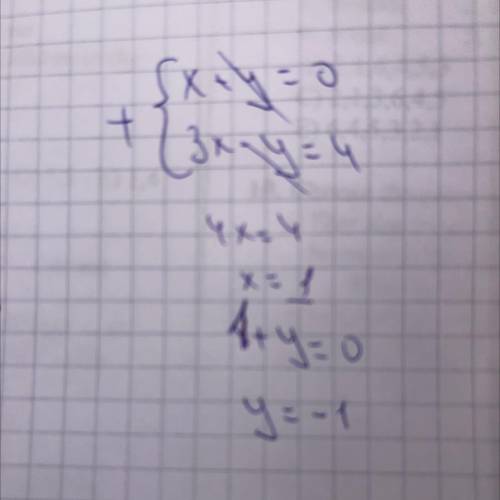 + { x + y = 0
3x - y = 4
4x = 4
x = 1
1 + y = 0
y = -1